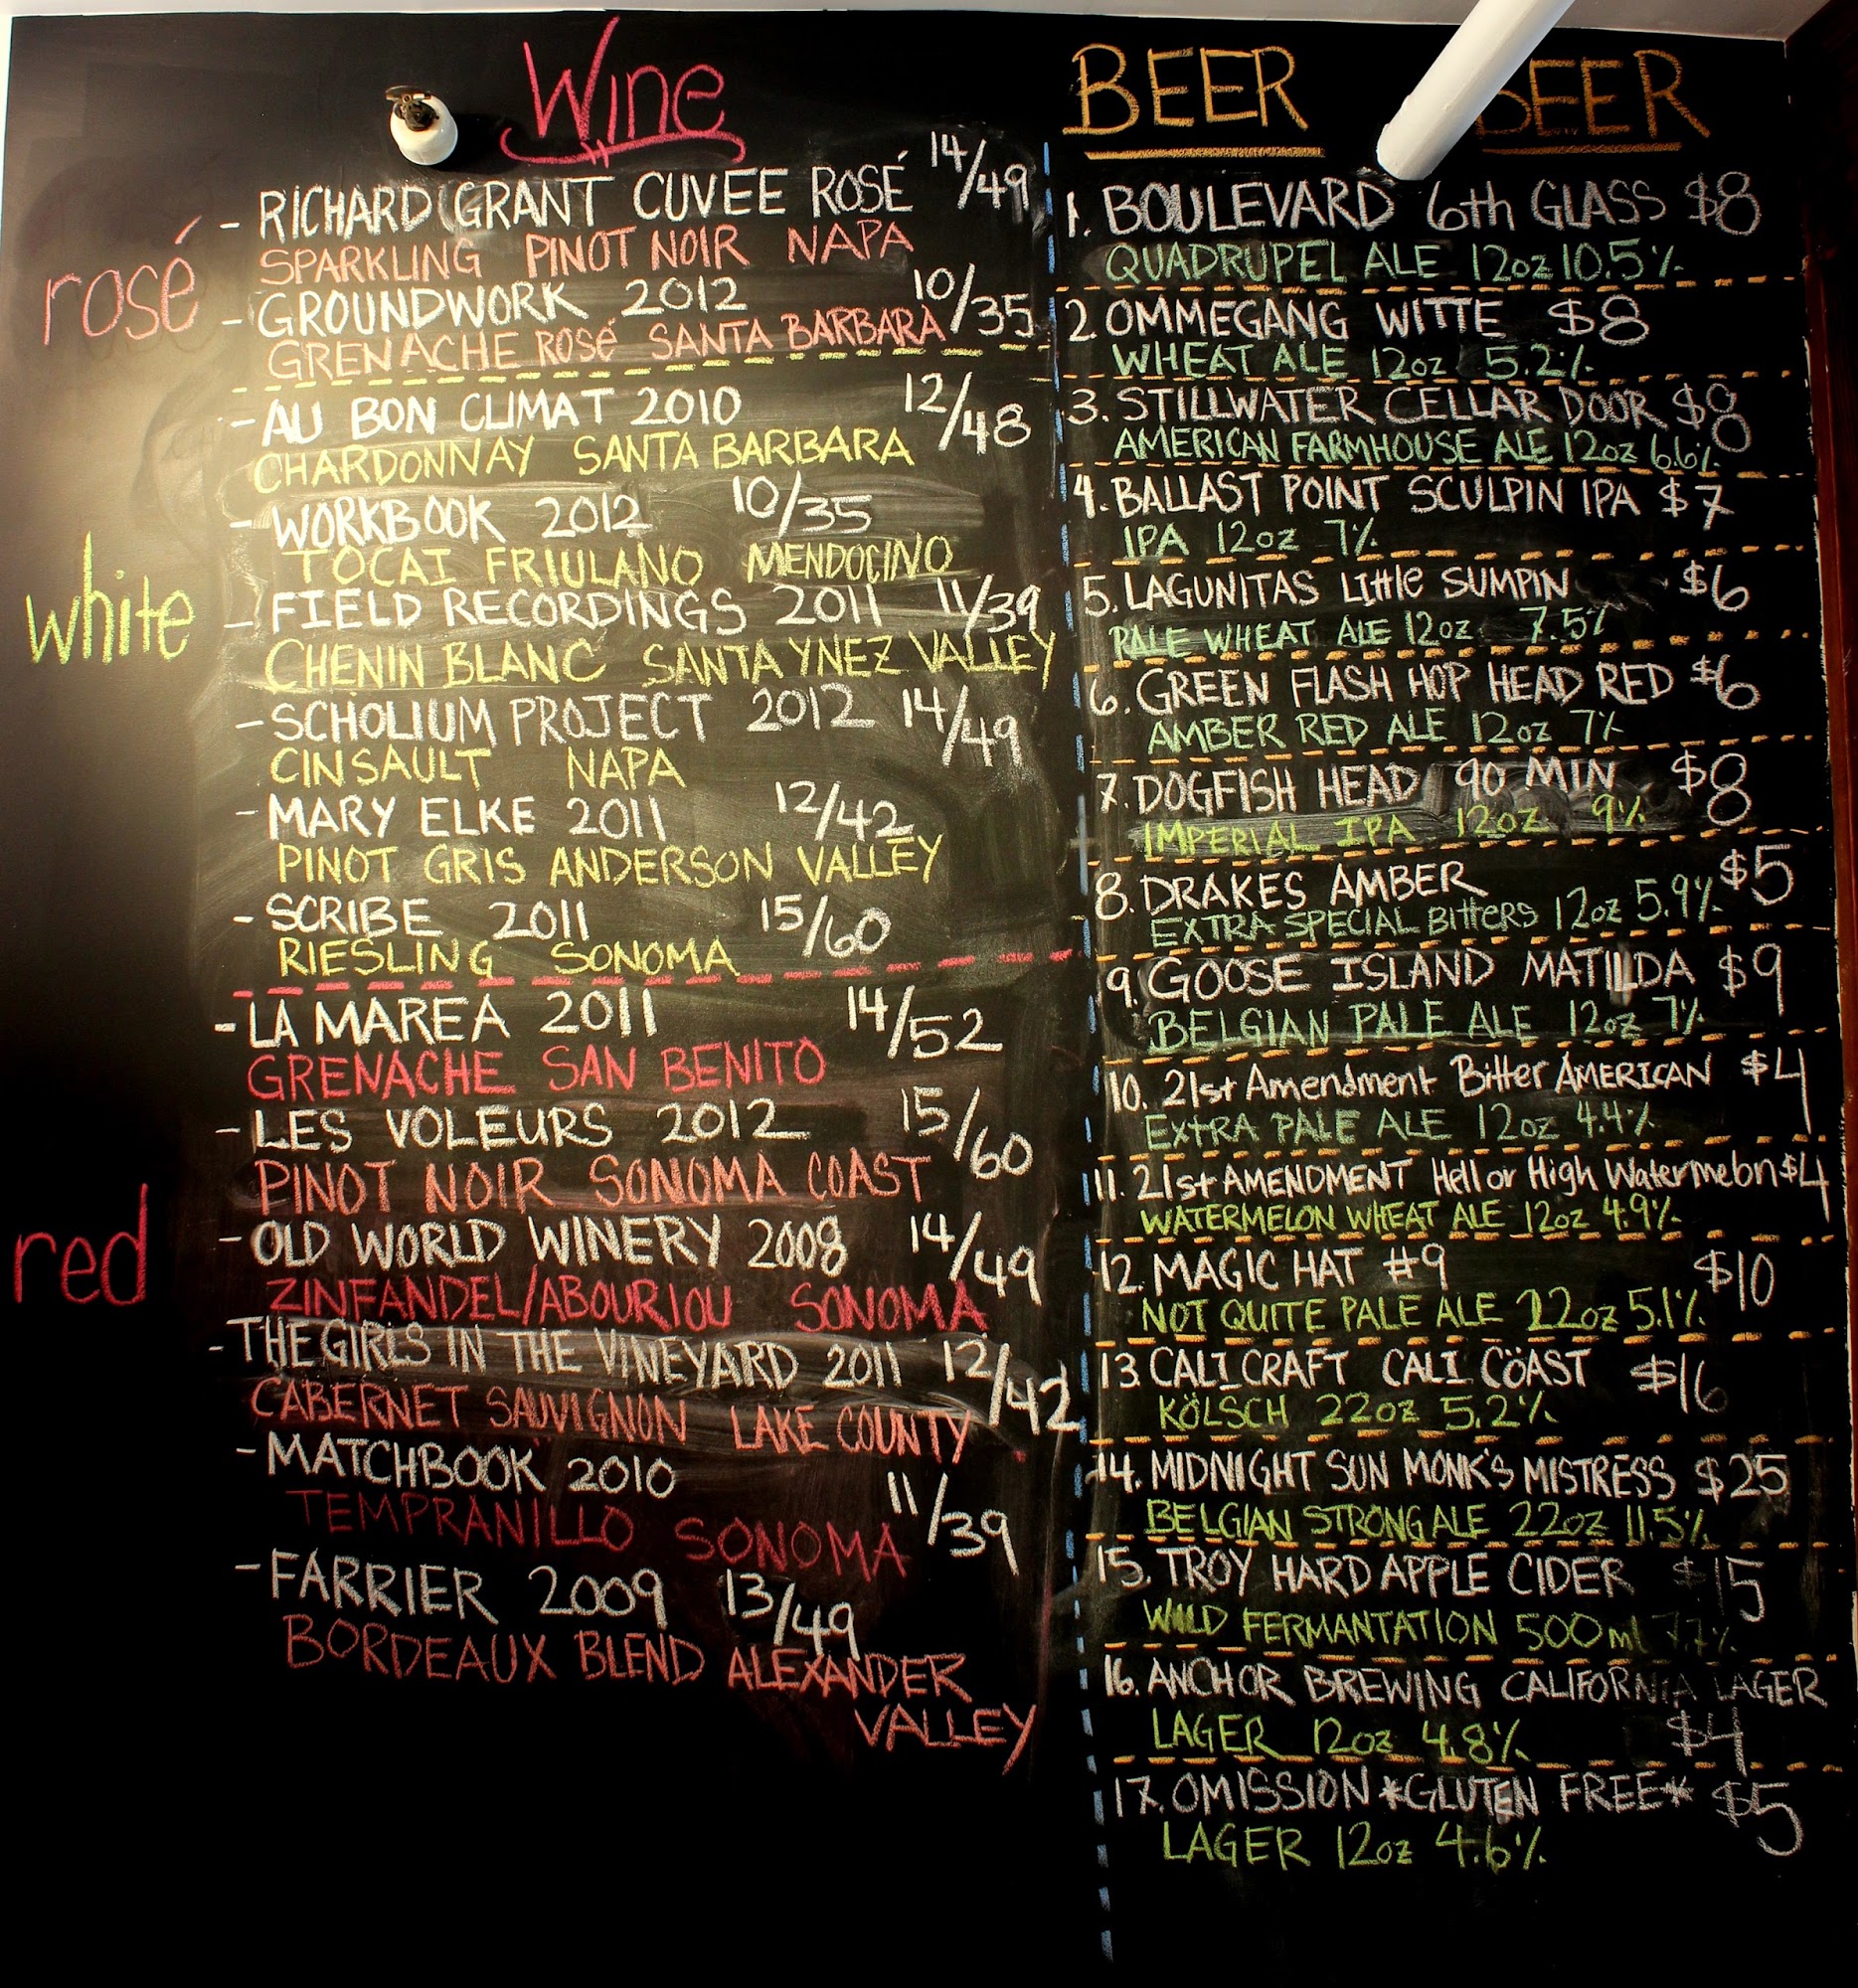 Wine
rosé
- RICHARD GRANT CUVEE ROSÉ 14/49
SPARKLING PINOT NOIR NAPA
- GROUNDWORK 2012 10/35
GRENACHE ROSÉ SANTA BARBARA
white
- AU BON CLIMAT 2010 12/48
CHARDONNAY SANTA BARBARA
- WORKBOOK 2012 10/35
TOCAI FRIULANO MENDOCINO
- FIELD RECORDINGS 2011 11/39
CHENIN BLANC SANTA YNEZ VALLEY
- SCHOLIUM PROJECT 2012 14/49
CINSAULT NAPA
- MARY ELKE 2011 12/42
PINOT GRIS ANDERSON VALLEY
- SCRIBE 2011 15/60
RIESLING SONOMA
red
- LA MAREA 2011 14/52
GRENACHE SAN BENITO
- LES VOLEURS 2012 15/60
PINOT NOIR SONOMA COAST
- OLD WORLD WINERY 2008 14/49
ZINFANDEL/ABOURIOU SONOMA
- THE GIRLS IN THE VINEYARD 2011 12/42
CABERNET SAUVIGNON LAKE COUNTY
- MATCHBOOK 2010 11/39
TEMPRANILLO SONOMA
- FARRIER 2009 13/49
BORDEAUX BLEND ALEXANDER
VALLEY
BEER BEER
1. BOULEVARD 6th GLASS $8
QUADRUPEL ALE 12oz 10.5%
2 OMMEGANG WITTE $8
WHEAT ALE 12oz 5.2%
3. STILLWATER CELLAR DOOR $8
AMERICAN FARMHOUSE ALE 12oz 6.6%
4. BALLAST POINT SCULPIN IPA $7
IPA 12oz 7%
5. LAGUNITAS Little SUMPIN $6
PALE WHEAT ALE 12oz 7.5%
6. GREEN FLASH HOP HEAD RED $6
AMBER RED ALE 12oz 7%
7. DOGFISH HEAD 90 MIN $8
IMPERIAL IPA 12oz 9%
8. DRAKES AMBER $5
EXTRA SPECIAL BittERS 12oz 5.9%
9. GOOSE ISLAND MATILDA $9
BELGIAN PALE ALE 12oz 7%
10. 21st Amendment Bitter AMERICAN $4
EXTRA PALE ALE 12oz 4.4%
11. 21st AMENDMENT Hell or High Watermelon $4
WATERMELON WHEAT ALE 12oz 4.9%
12. MAGIC HAT #9 $10
NOT QUITE PALE ALE 22oz 5.1%
13 CALICRAFT CALI CÖAST $16
KÖLSCH 22oz 5.2%
14. MIDNIGHT SUN MONK'S MISTRESS $25
BELGIAN STRONG ALE 22oz 11.5%
15. TROY HARD APPLE CIDER $15
WILD FERMANTATION 500ml 7.7%
16. ANCHOR BREWING CALIFORNIA LAGER
LAGER 12oz 4.8% $4
17. OMISSION *GLUTEN FREE* $5
LAGER 12oz 4.6%